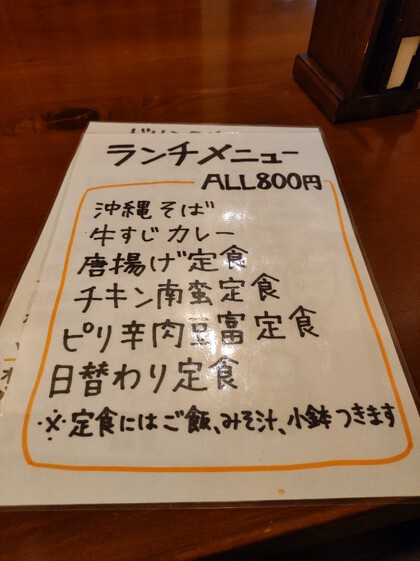 ランチメニュー
ALL800円
沖縄そば
牛すじカレー
唐揚げ定食
チキン南蛮定食
ピリ辛肉豆富定食
日替わり定食
※定食にはご飯、みそ汁、小鉢つきます